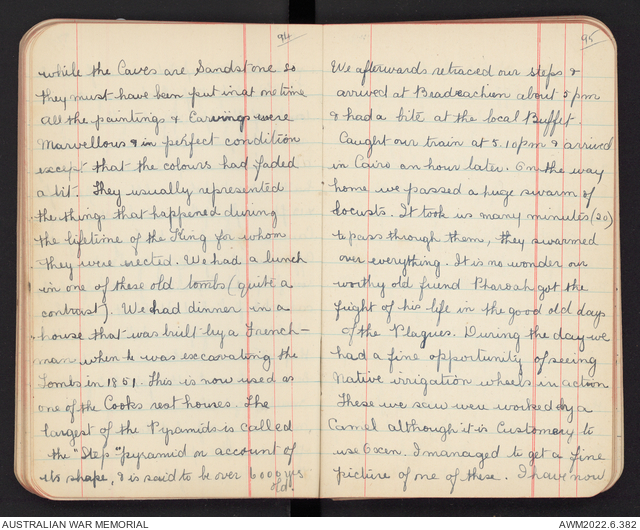 94
while the Caves are Sandstone so
they must have been put in at one time
All the paintings & Carvings were
Marvellous & in perfect condition
except that the colours had faded
a bit. They usually represented
the things that happened during
the lifetime of the King for whom
they were erected. We had a lunch
in one of these old tombs (quite a
contrast). We had dinner in a
house that was built by a French-
man when he was excavating the
Tombs in 1851. This is now used as
one of the Cooks rest houses. The
largest of the Pyramids is called
the "Step" pyramid on account of
its shape, & is said to be over 6000 yrs
old.
95
We afterwards retraced our steps &
arrived at Beadrachien about 5 pm
& had a bite at the local Buffet.
Caught our train at 5.10 pm & arrived
in Cairo an hour later. On the way
home we passed a huge swarm of
locusts. It took us many minutes (20)
to pass through them, they swarmed
over everything. It is no wonder our
worthy old friend Pharoah got the
fright of his life in the good old days
of the Plagues. During the day we
had a fine opportunity of seeing
Native irrigation wheels in action
These we saw were worked by a
Camel although it is Customary to
use Oxen. I managed to get a fine
picture of one of these. I have now
AUSTRALIAN WAR MEMORIAL
AWM2022.6.382